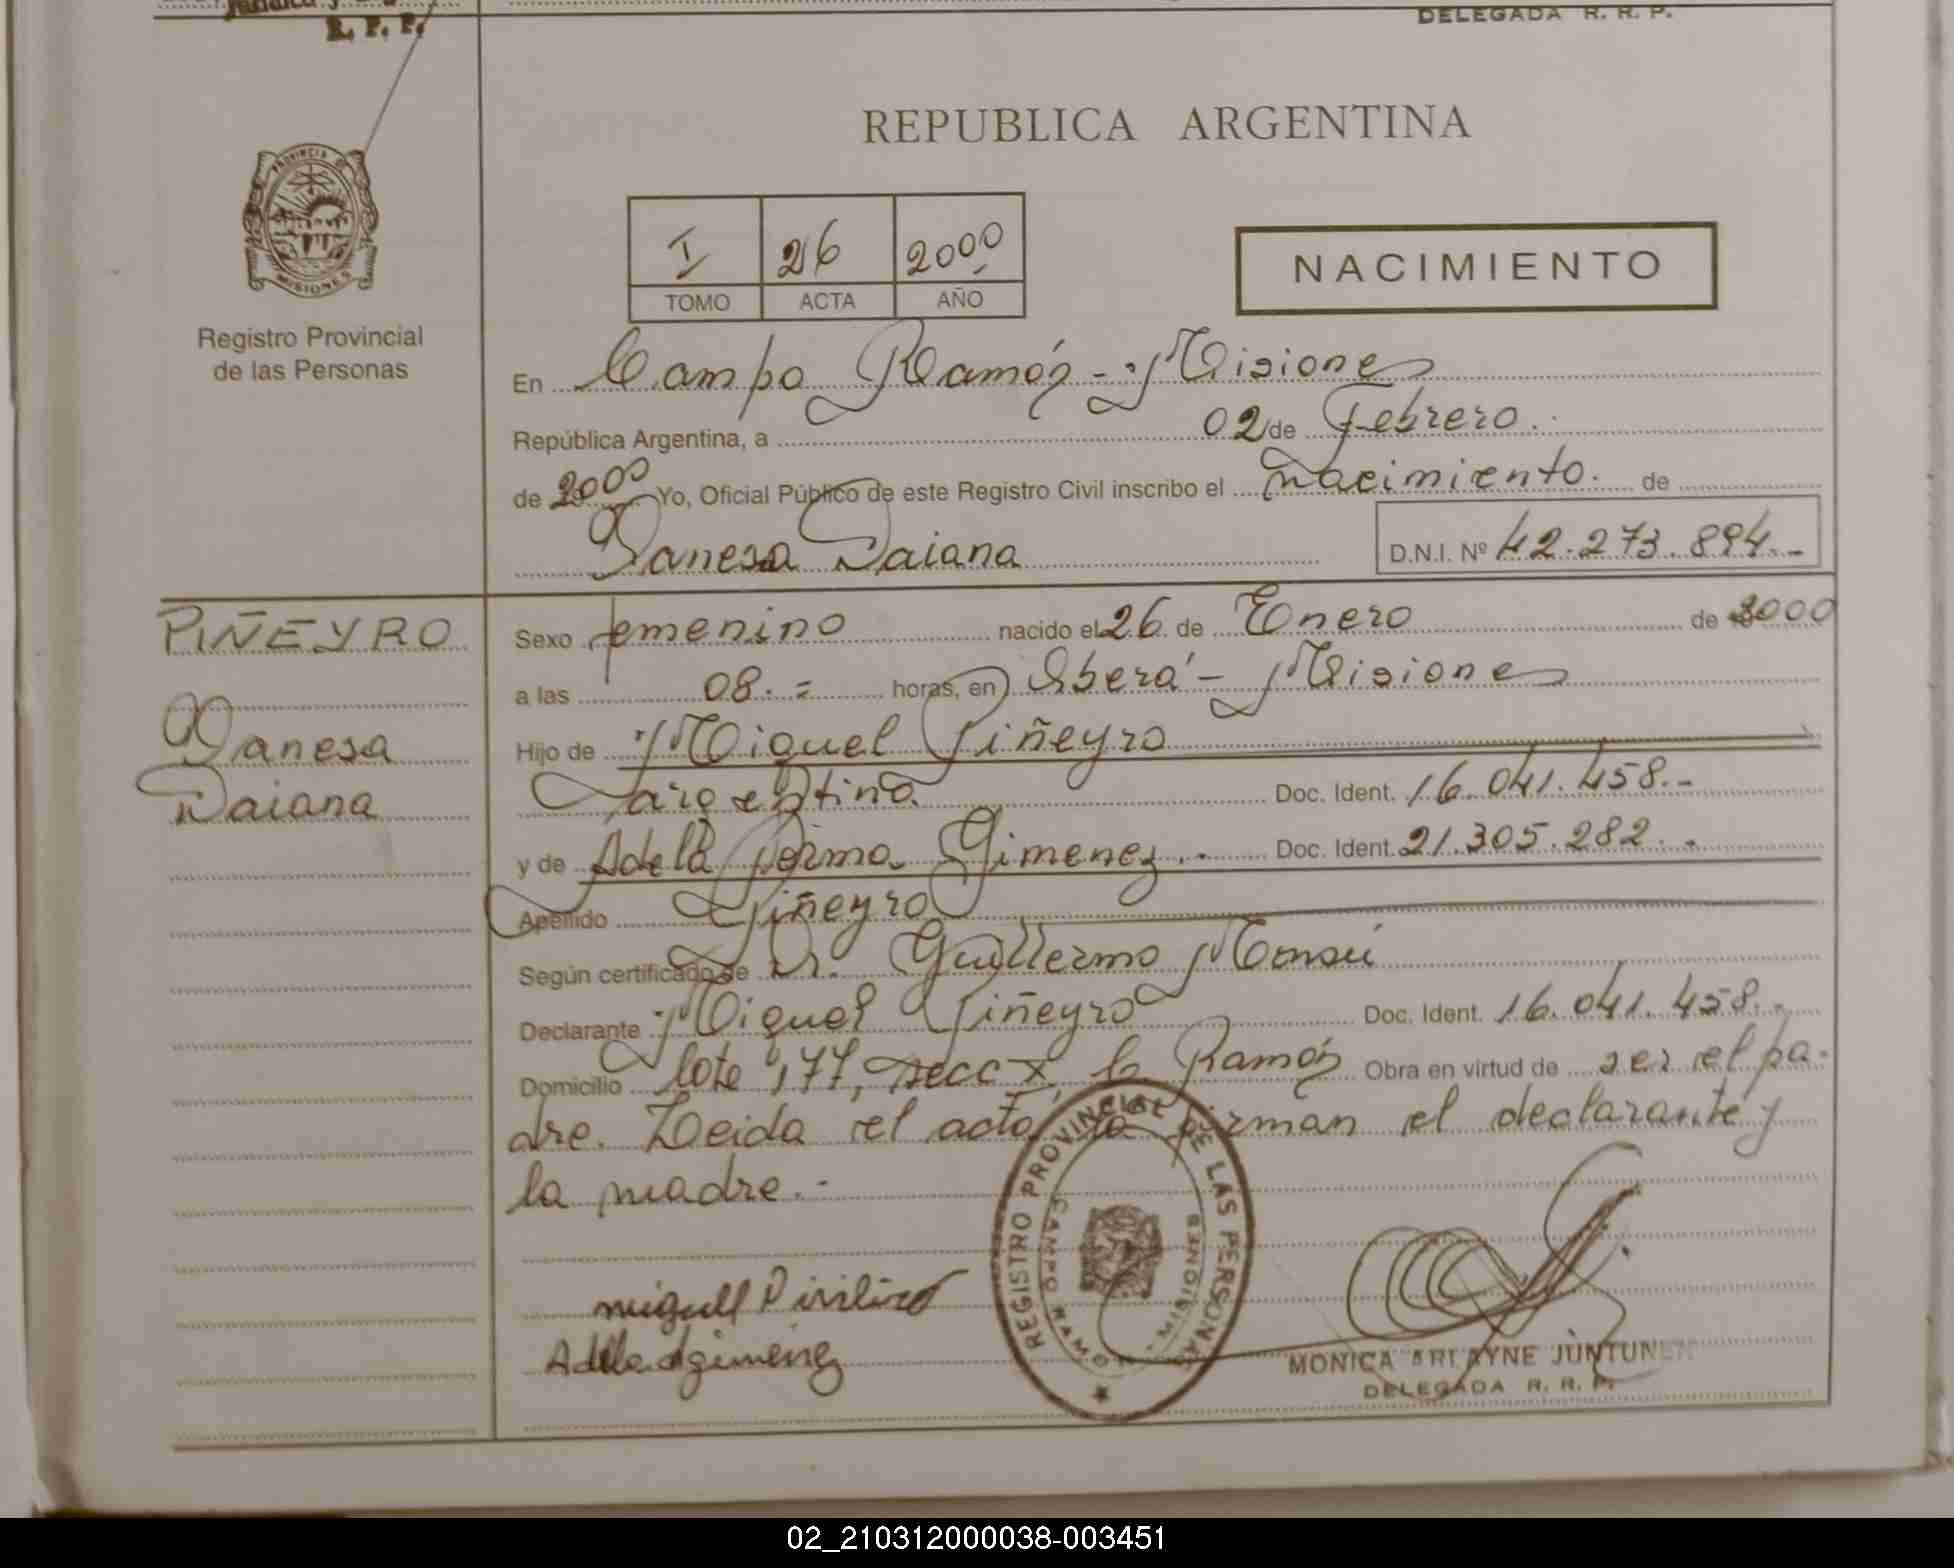 R. P. P.
DELEGADA R. R. P.
REPUBLICA ARGENTINA
PROVINCIA D
MISIONES
Registro Provincial
de las Personas
I 26 2000
TOMO ACTA AÑO
NACIMIENTO
En Campo Ramón - Misiones
República Argentina, a 02 de Febrero.
de 2000 Yo, Oficial Público de este Registro Civil inscribo el nacimiento. de
Vanesa Daiana D.N.I. Nº 42.273.894.-
PIÑEYRO
Vanesa
Daiana
Sexo femenino nacido el 26 de Enero de 2000
a las 08.= horas, en Oberá - Misiones
Hijo de Miguel Piñeyro
argentino. Doc. Ident. 16.041.458.-
y de Adela Norma Gimenez.- Doc. Ident. 21.305.282.-
Apellido Piñeyro
Según certificado de Dr. Guillermo Monsú
Declarante Miguel Piñeyro Doc. Ident. 16.041.458.-
Domicilio lote 177, secc X, C. Ramón Obra en virtud de ser el pa-
dre. Leida el acta, la firman el declarante y
la madre.-
REGISTRO PROVINCIAL DE LAS PERSONAS
CAMPO RAMON - MISIONES
MONICA ARLAYNE JUNTUNEN
DELEGADA R. R. P.
02_210312000038-003451